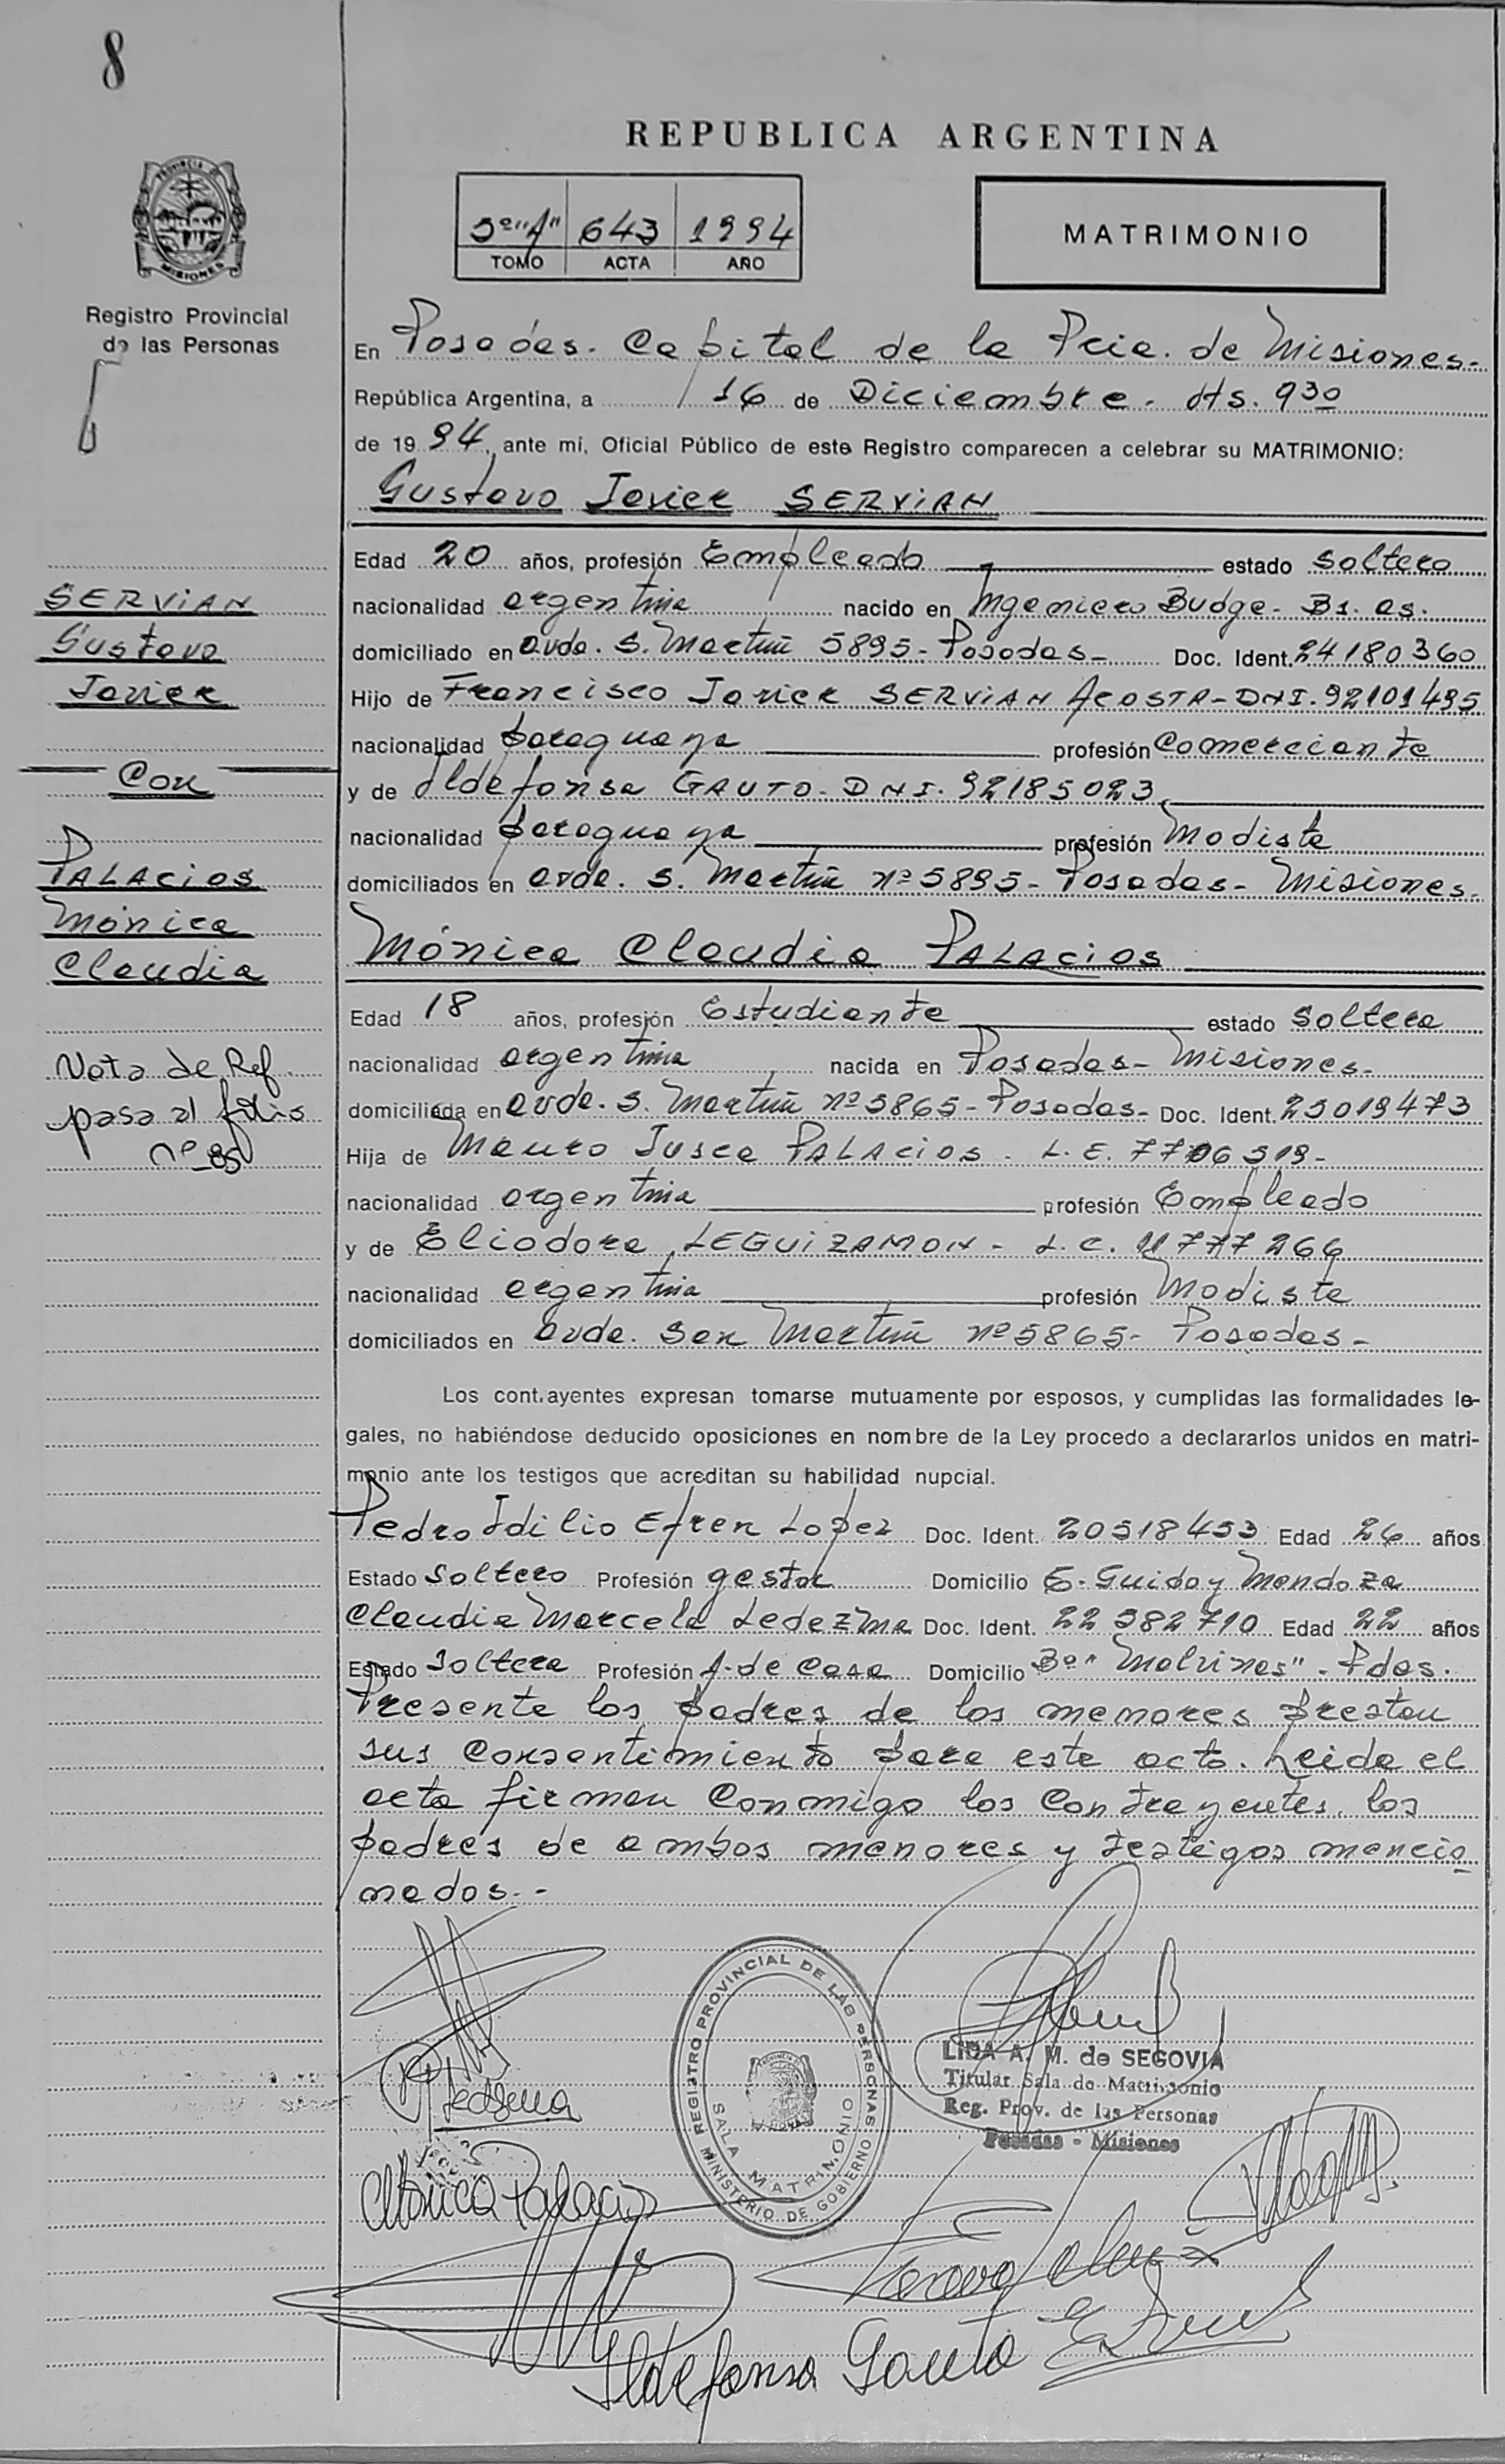 8
REPUBLICA ARGENTINA
5º "A" 643 1994
TOMO ACTA AÑO
MATRIMONIO
PROVINCIA DE
MISIONES
Registro Provincial
de las Personas
En Posadas. Capital de la Pcia. de Misiones.-
República Argentina, a 16 de Diciembre. Hs. 9 30
de 19 94, ante mí, Oficial Público de este Registro comparecen a celebrar su MATRIMONIO:
Gustavo Javier SERVIAN
Edad 20 años, profesión Empleado estado Soltero
nacionalidad argentina nacido en Ingeniero Budge - Bs. as.
domiciliado en avda. S. Martín 5895 - Posadas - Doc. Ident. 24180360
Hijo de Francisco Javier SERVIAN ACOSTA - DNI. 92101495
nacionalidad paraguaya profesión Comerciante
y de Ildefonsa GAUTO - DNI. 92185023
nacionalidad paraguaya profesión Modista
domiciliados en avda. S. Martín nº 5895 - Posadas - Misiones.
Mónica Claudia PALACIOS
Edad 18 años, profesión Estudiante estado Soltera
nacionalidad argentina nacida en Posadas - Misiones.-
domiciliada en avda. S. Martín nº 5865 - Posadas - Doc. Ident. 25019473
Hija de Mauro PALACIOS - L.E.
nacionalidad argentina profesión Empleado
y de Eliodora LEGUIZAMON - L.C. 11777266
nacionalidad argentina profesión Modista
domiciliados en avda. San Martín nº 5865 - Posadas -
Los contrayentes expresan tomarse mutuamente por esposos, y cumplidas las formalidades le-
gales, no habiéndose deducido oposiciones en nombre de la Ley procedo a declararlos unidos en matri-
monio ante los testigos que acreditan su habilidad nupcial.
Pedro Idilio Efren Lopez Doc. Ident. 20518453 Edad 26 años
Estado Soltero Profesión gestor Domicilio E. Guido y Mendoza
Claudia Marcela Ledezma Doc. Ident. 22382710 Edad 22 años
Estado Soltera Profesión A. de Casa Domicilio Bº "Malvinas" - Pdas.
Presente los padres de los menores prestan
sus consentimiento para este acto. Leida el
acta firman conmigo los contrayentes, los
padres de ambos menores y testigos mencio
nados.-
SERVIAN
Gustavo
Javier
Con
PALACIOS
Mónica
Claudia
Nota de Ref.
pasa al folio
nº 85
REGISTRO PROVINCIAL DE LAS PERSONAS
MINISTERIO DE GOBIERNO
SALA MATRIMONIO
LIDA A. M. de SEGOVIA
Titular Sala de Matrimonio
Reg. Prov. de las Personas
Posadas - Misiones
Mónica Palacios
Ildefonsa Gauto